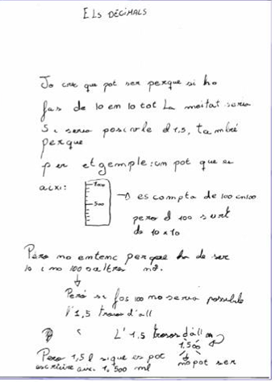 ELS DÈCIMALS
Jo crec que pot ser perque si ho
fas de 10 en 10 tot La meitat seria
5 i seria posivle d 1,5, també
perque
per etgemple: un pot que es
aixi:
1000
500
es compta de 100 en 100
pero d 100 surt
de 10 x 10
Pero no entenc perque ha de ser
10 i no 100 saltres nd.
Però si fos 100 no seria possible
l'1,5 trossos d'all
L' 1.5 trossos d'all
1,500
Pero 1,5 l sique es pot no pot ser
escriure 1.500 ml